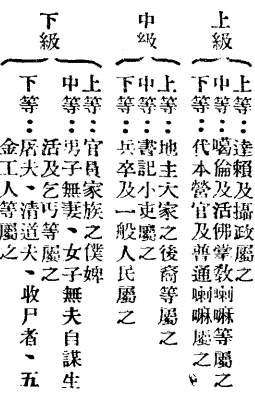 上級
上等：達賴及攝政屬之
中等：噶倫及活佛掌敎喇嘛等屬之
下等：代本營官及普通喇嘛屬之
中級
上等：地主大家之後裔等屬之
中等：書記小吏屬之
下等：兵卒及一般人民屬之
下級
上等：官員家族之僕婢
中等：男子無妻、女子無夫自謀生
活及乞丐等屬之
下等：屠夫、清道夫、收尸者、五
金工人等屬之